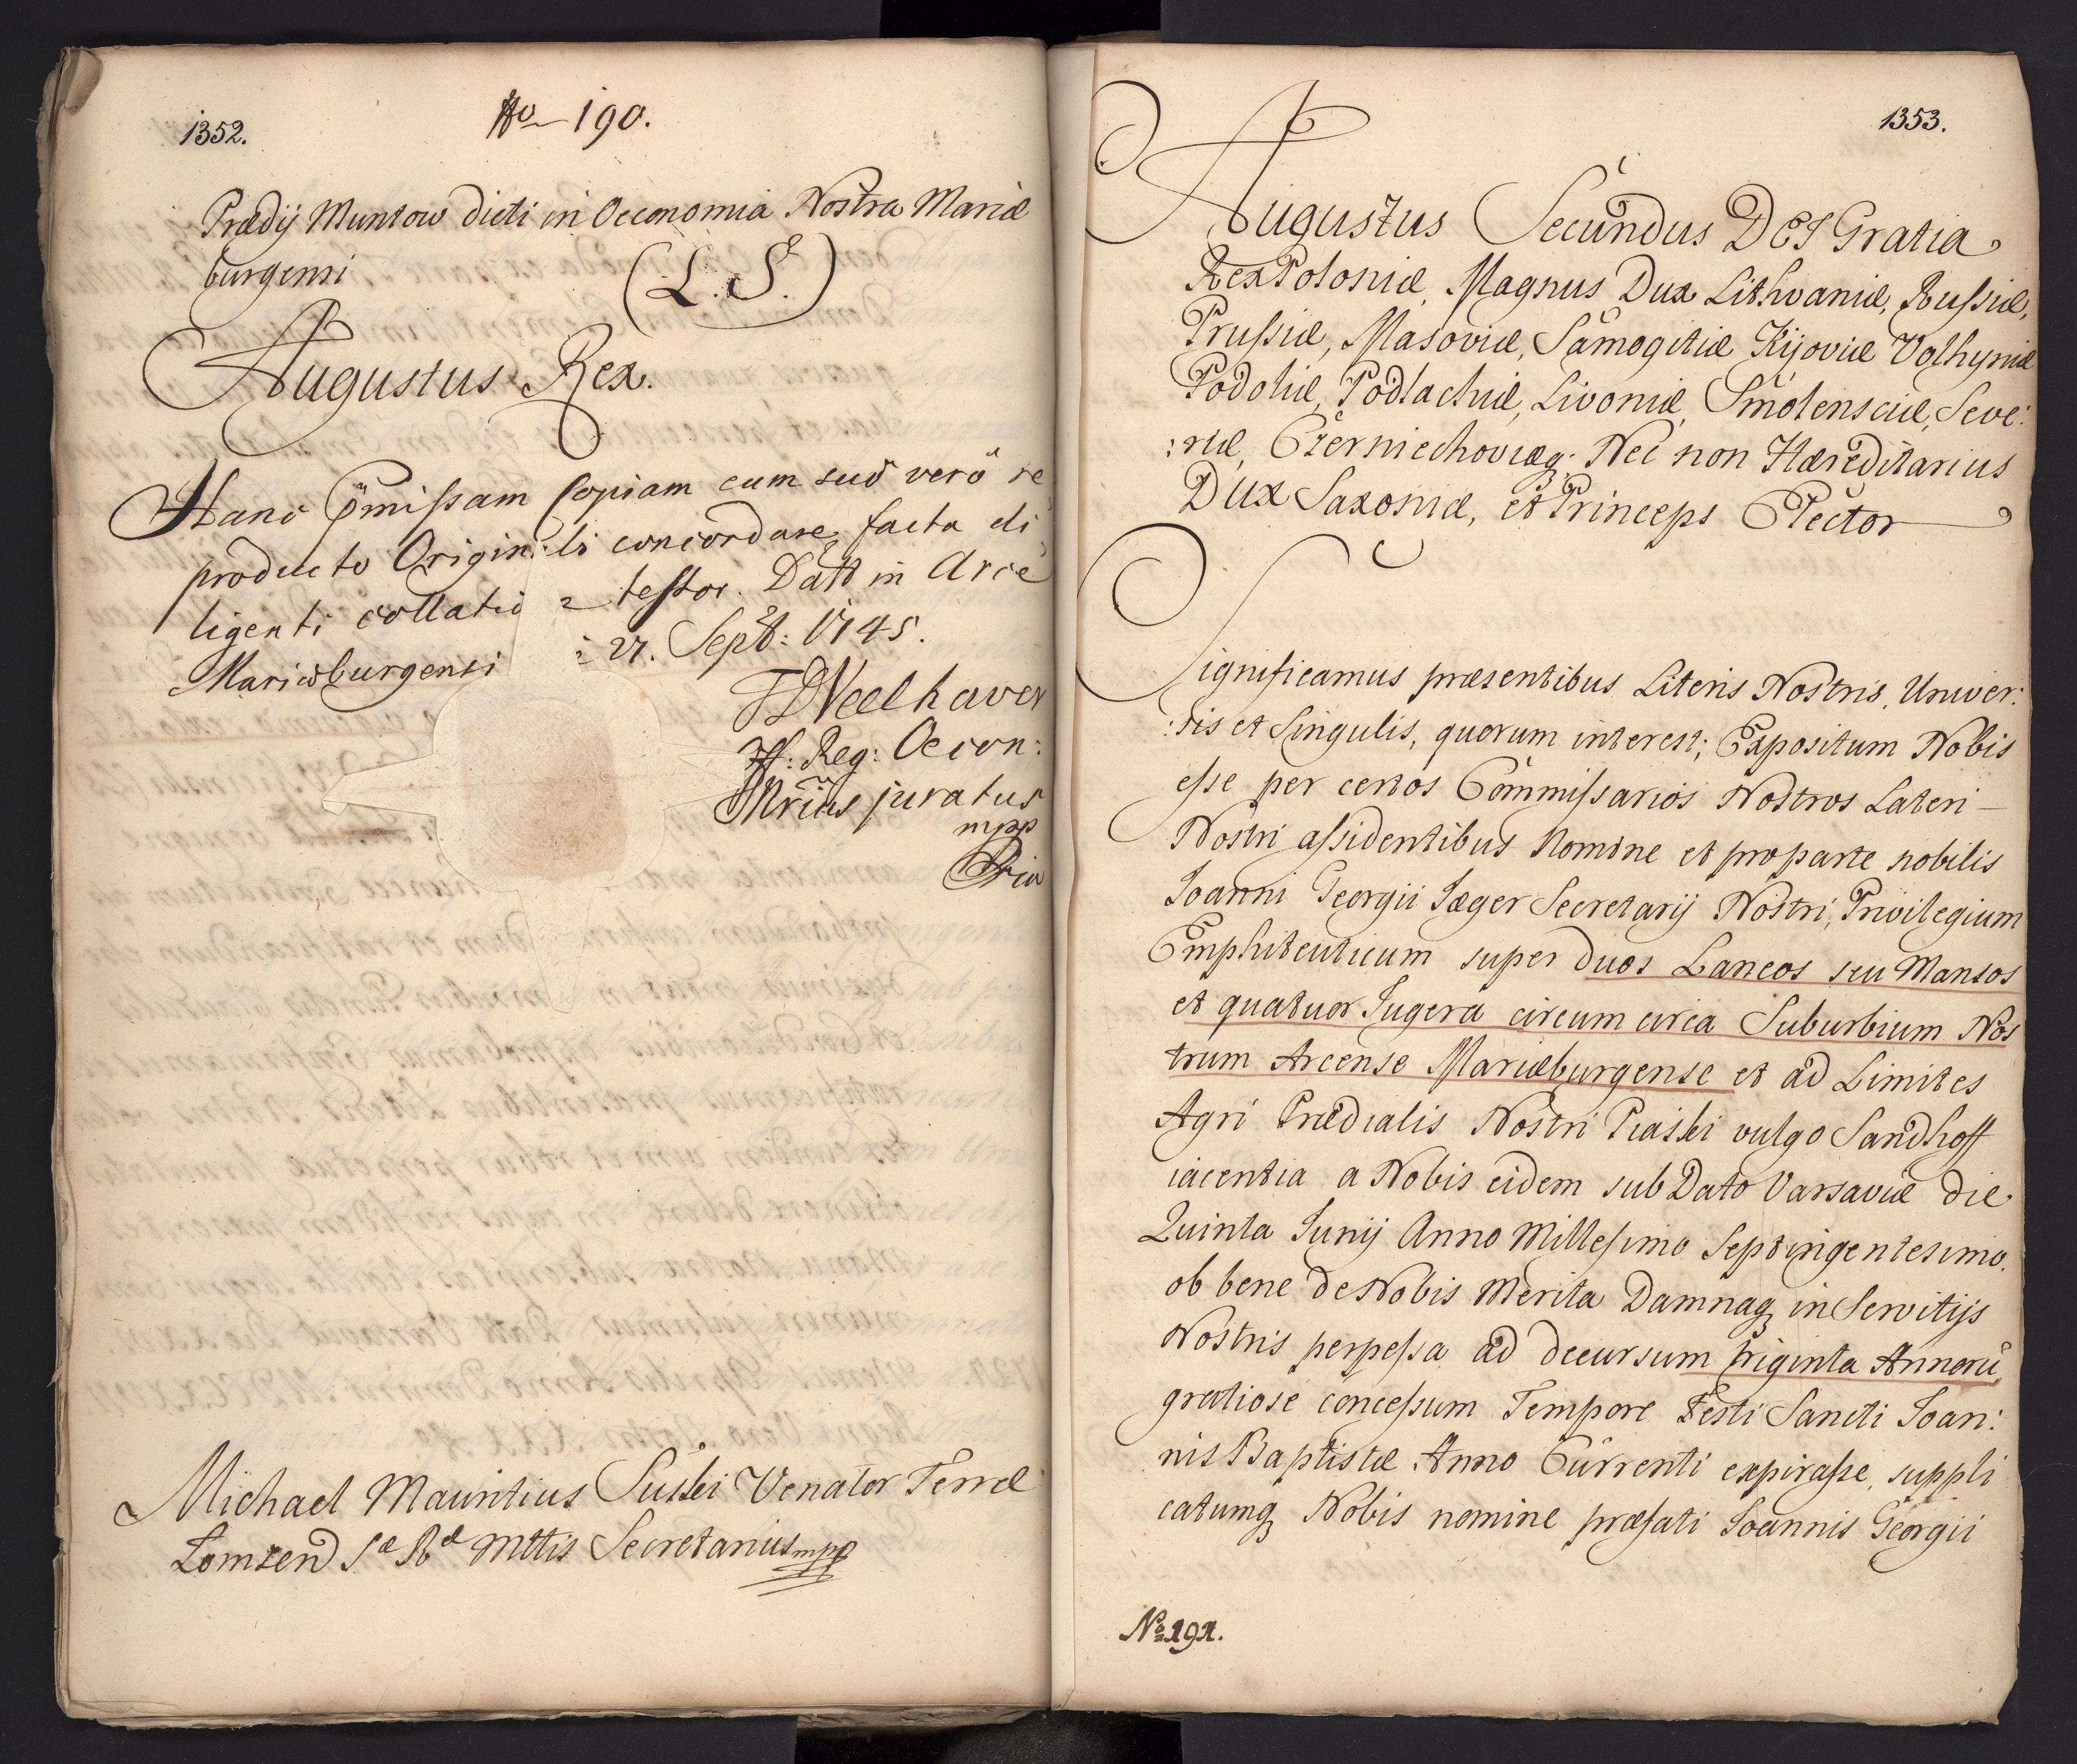 1352.
No 190.
Prædij Muntow dicti in Oeconomia Nostra Mariæ
burgensi
(L. S.)
Augustus Rex.
Hanc pmissam Copiam cum suo vero re
producto Originali concordare, facta di
ligenti collatio testor. Datt in Arce
Mariæburgensi 27. Septb: 1745.
Reg: Oecon:
juratus
mpp
Michael Mauritius Suski Venator Terræ
Lomzen S æ R æ Mttis Secretarius mpp
1353.
Augustus Secundus DEI Gratia
Rex Poloniæ, Magnus Dux Lithvaniæ, Russiæ,
Prussiæ, Masoviæ, Samogitiæ Kijoviæ Volhyniæ
Podoliæ, Podlachiæ, Livoniæ, Smolensciæ, Seve:
:riæ, Czerniechoviæq; Nec non Hæreditarius
Dux Saxoniæ, et Princeps Elector
Significamus præsentibus Literis Nostris, Univer:
:sis et Singulis, quorum interest; Expositum Nobis
esse per certos Commissarios Nostros Lateri
Nostri assidentibus Nomine et pro parte nobilis
Joanni Georgii Jæger Secretarij Nostri, Privilegium
Emphiteuticum super duos Laneos seu Mansos
et quatuor Jugera circum circa Suburbium Nos
trum Arcense Mariæburgense et ad Limites
Agri Prædialis Nostri Piaski vulgo Sandhoff
iacentia a Nobis eidem sub Dato Varsaviæ die
Quinta Junij Anno Millesimo Septingentesimo,
ob bene de Nobis Merita Damnaq; in Servitijs
Nostris perpessa ad decursum triginta Annorū
gratiose concessum Tempore Festi Sancti Joan:
nis Baptistæ Anno Currenti expirasse, suppli
catumq; Nobis nomine præfati Joannis Georgii
No 191.